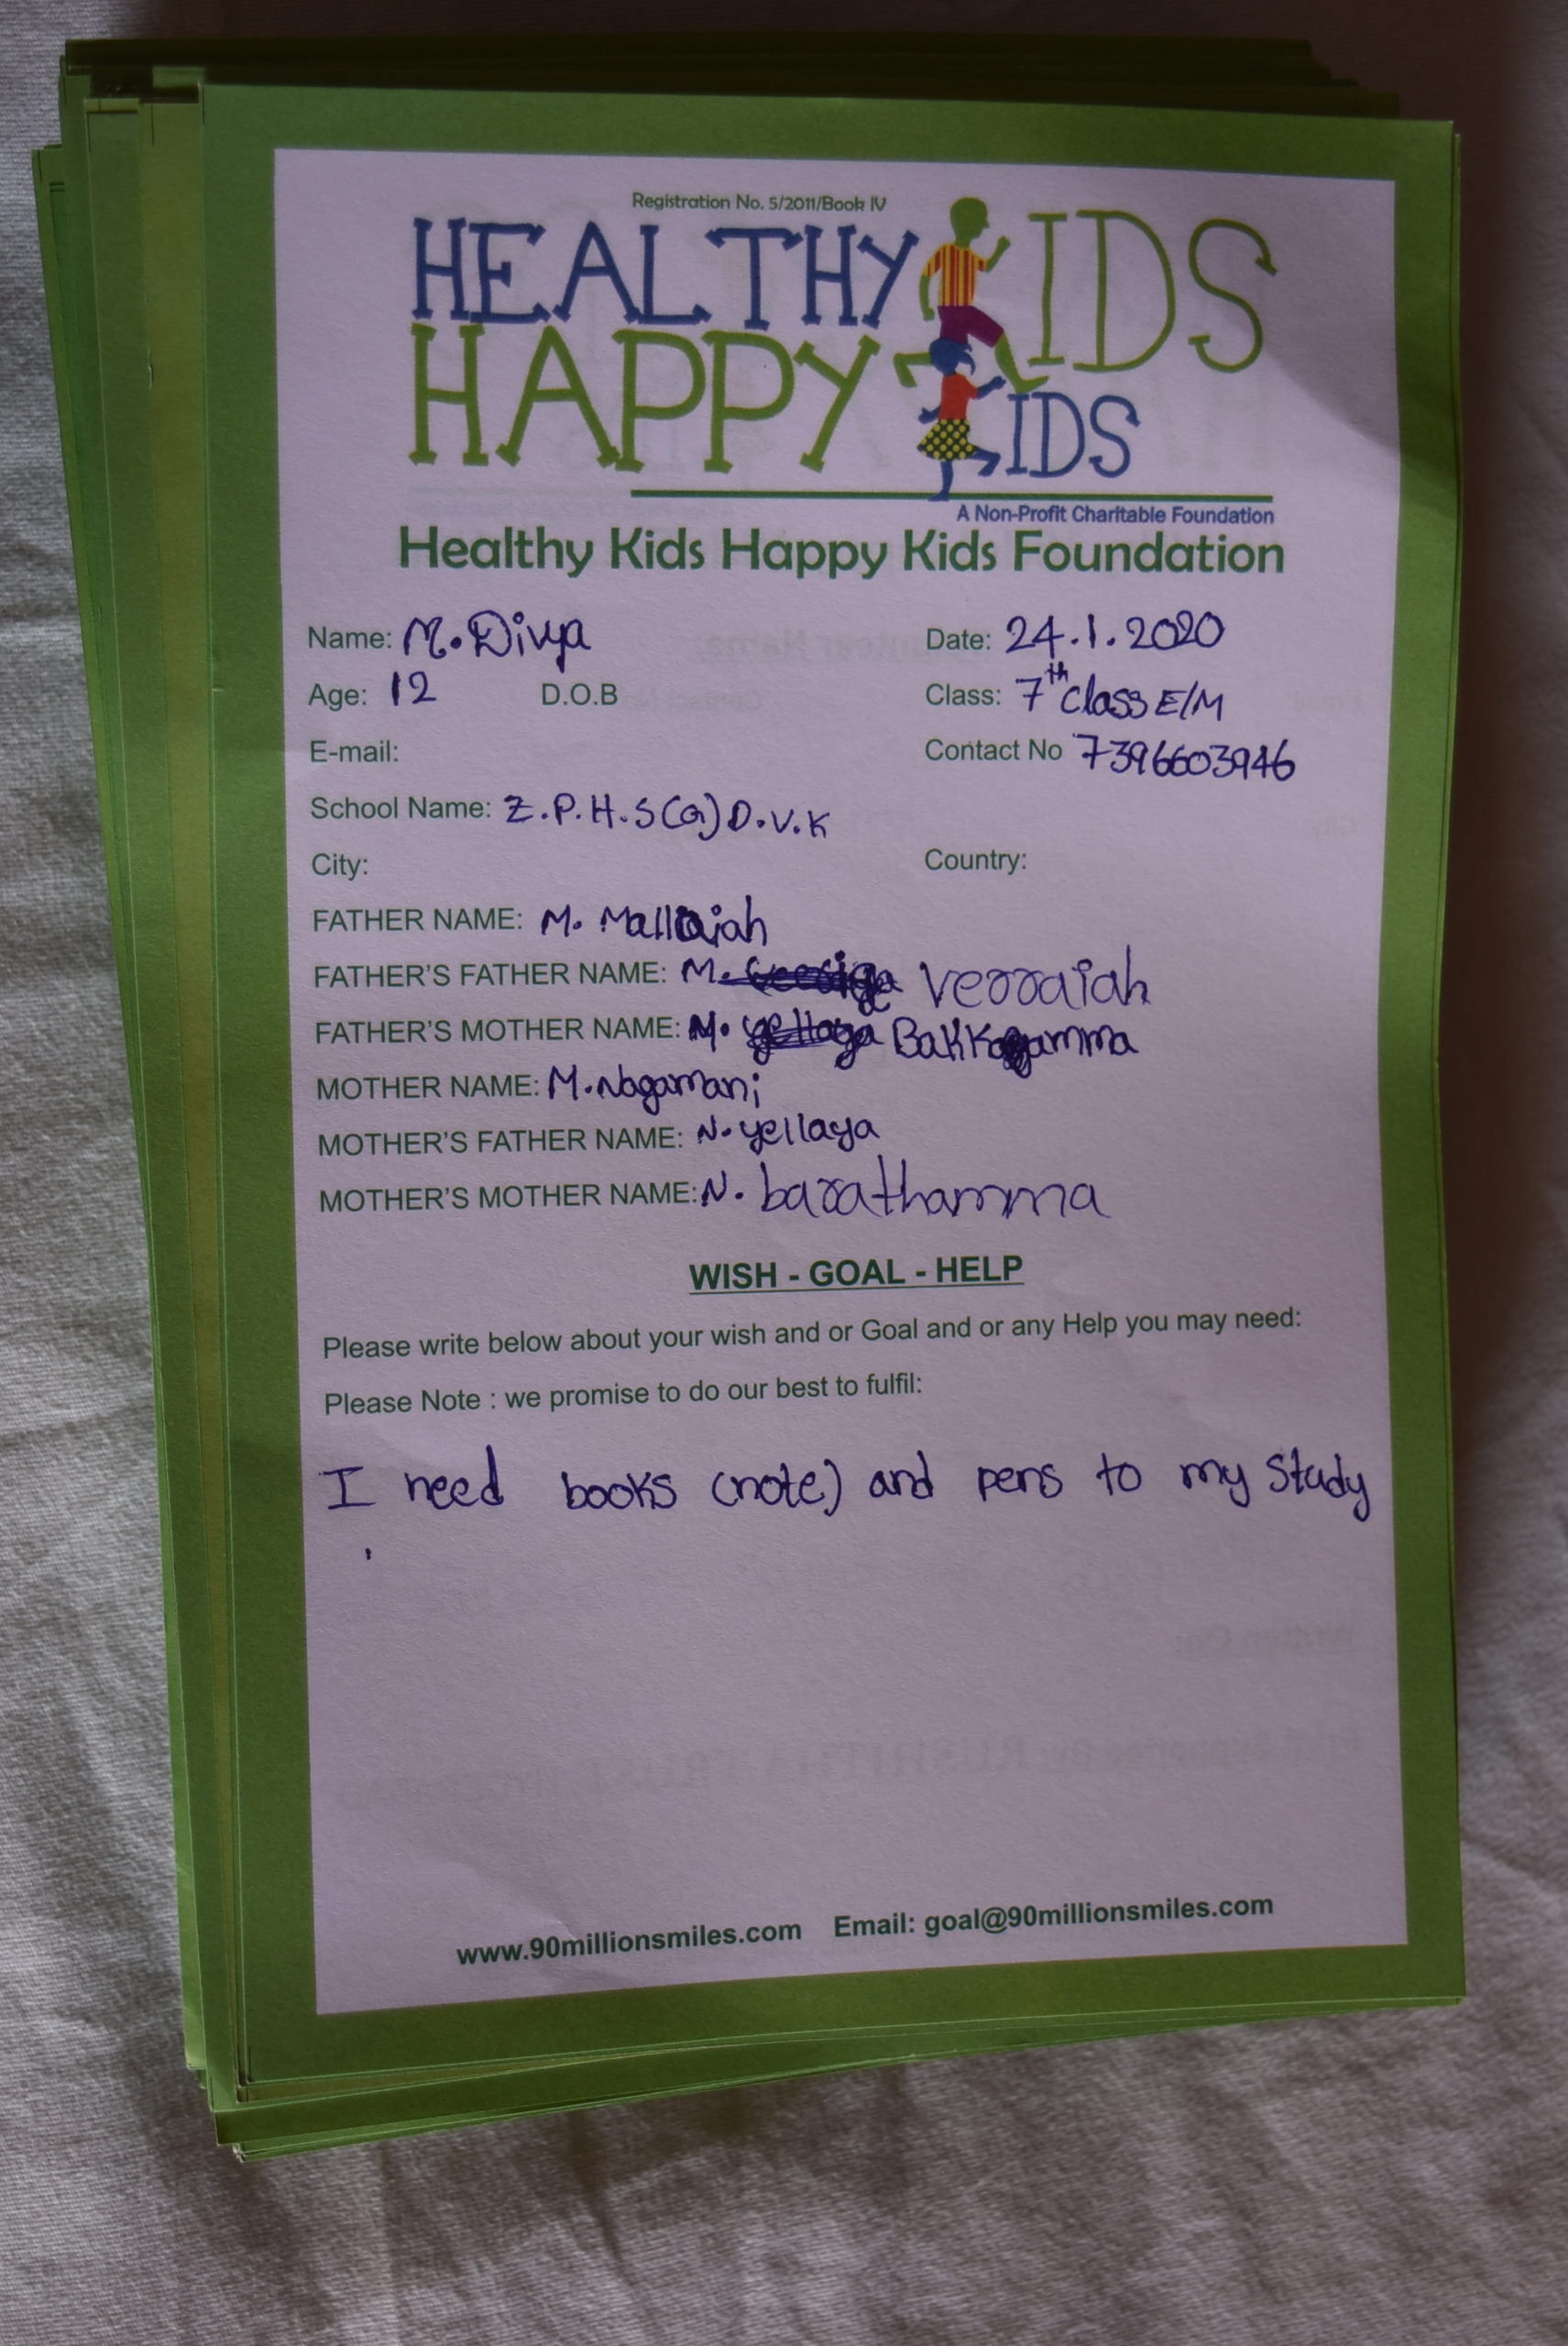 Registration No. 5/2011/Book IV
HEALTHY KIDS
HAPPY KIDS
A Non-Profit Charitable Foundation
Healthy Kids Happy Kids Foundation
Name: M. Divya Date: 24.1.2020
Age: 12 D.O.B Class: 7th class E/M
E-mail: Contact No 7396603946
School Name: Z.P.H.S(G) D.V.K
City: Country:
FATHER NAME: M. Mallaiah
FATHER'S FATHER NAME: M. Verraiah
FATHER'S MOTHER NAME: M. Bakkamma
MOTHER NAME: M. Nagamani
MOTHER'S FATHER NAME: N. yellaya
MOTHER'S MOTHER NAME: N. barathamma
WISH - GOAL - HELP
Please write below about your wish and or Goal and or any Help you may need:
Please Note : we promise to do our best to fulfil:
I need books (note) and pens to my study
www.90millionsmiles.com Email: goal@90millionsmiles.com